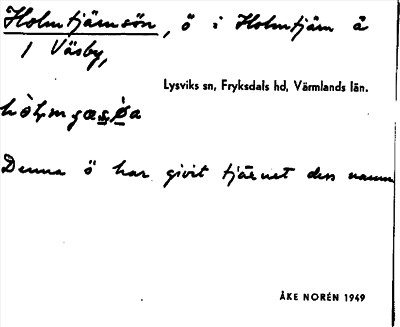 Holmtjärnsön, ö i Holmtjärn å
1 Väsby,
Lysviks sn, Fryksdals hd, Värmlands län.
Denna ö har givit tjärnet dess namn
ÅKE NORÉN 1949